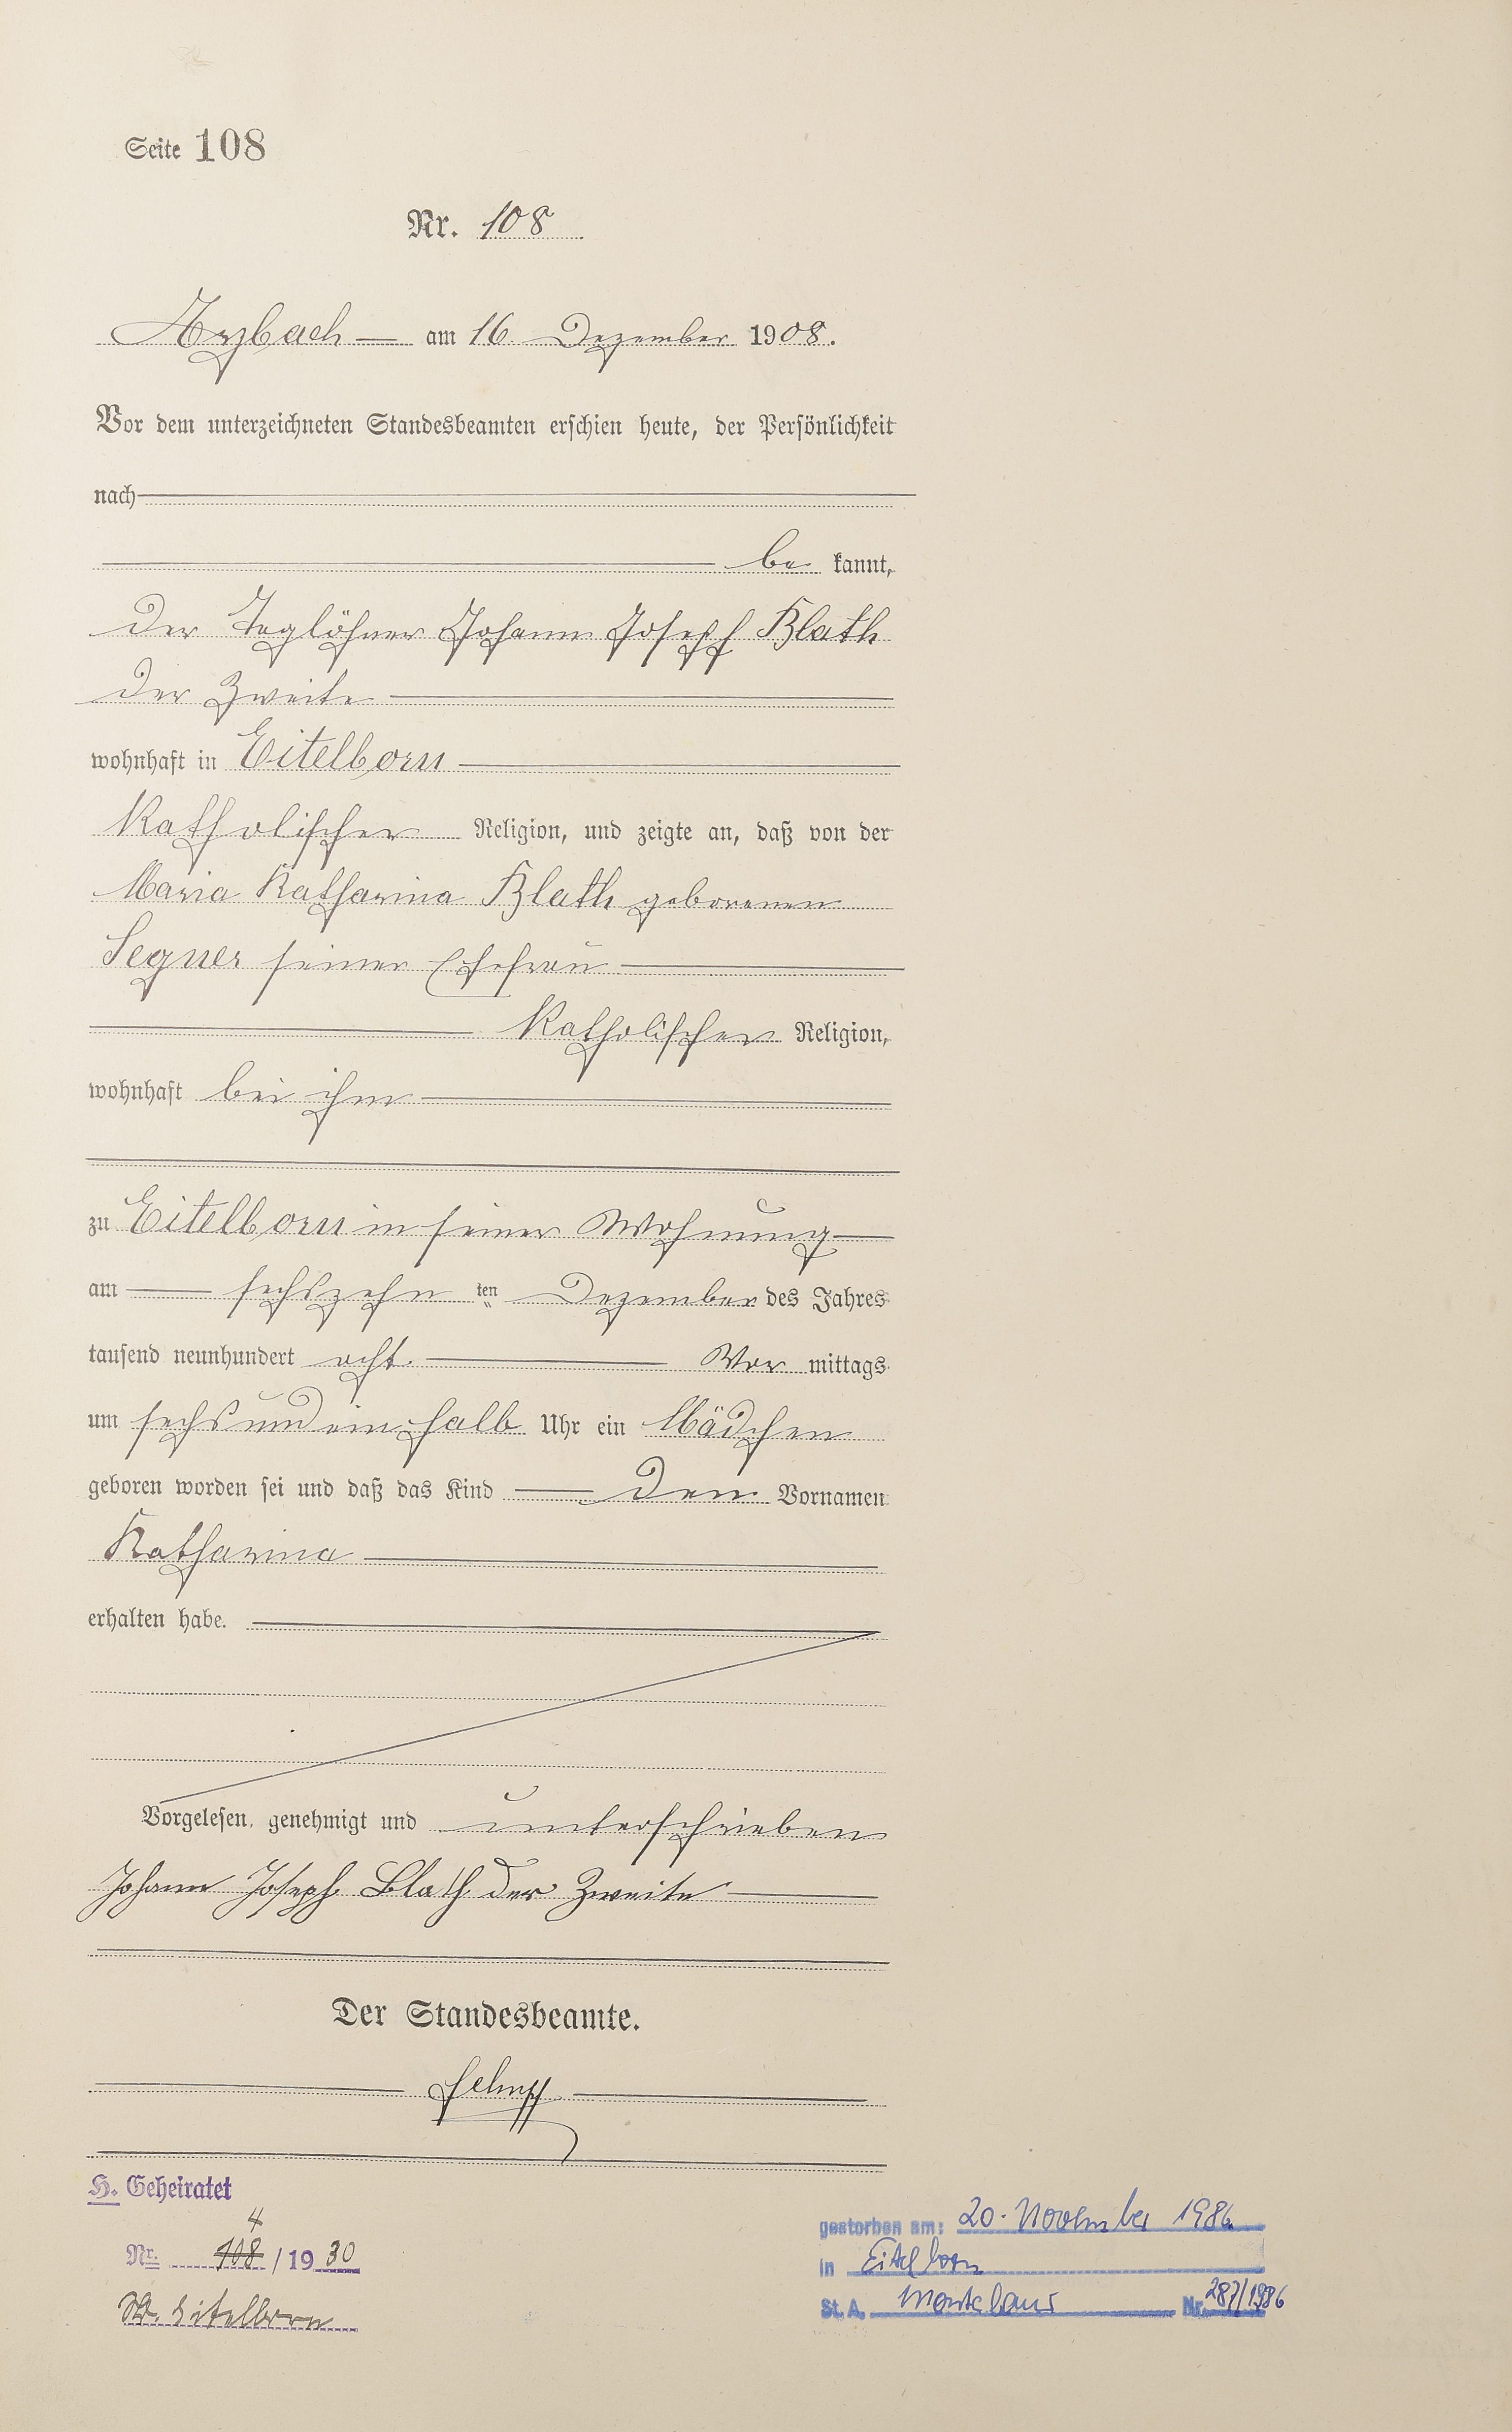 Seite 108
Nr. 108
Arzbach am 16 Dezember 1908.
Vor dem unterzeichneten Standesbeamten erschien heute, der Persönlichkeit
nach
be kannt,
der Taglöhner Johann Joseph Blath
der Zweite
wohnhaft in Eitelborn
Katholischer Religion, und zeigte an, daß von der
Maria Katharina Blath geborenen
Segner seiner Ehefrau
Katholischer Religion,
wohnhaft bei ihm
zu Eitelborn in seiner Wohnung
am sechszehn ten Dezember des Jahres
tausend neunhundert acht. Vor mittags
um sechs und ein halb Uhr ein Mädchen
geboren worden sei und daß das Kind den Vornamen
Katharina
erhalten habe.
Vorgelesen, genehmigt und unterschrieben
Johann Joseph Blath der Zweite
Der Standesbeamte.
H. Geheiratet
4
Nr. 108 / 1930
St. Eitelborn
gestorben am: 20. November 1986
in Eitelborn
St. A. Montabaur Nr. 287/1986